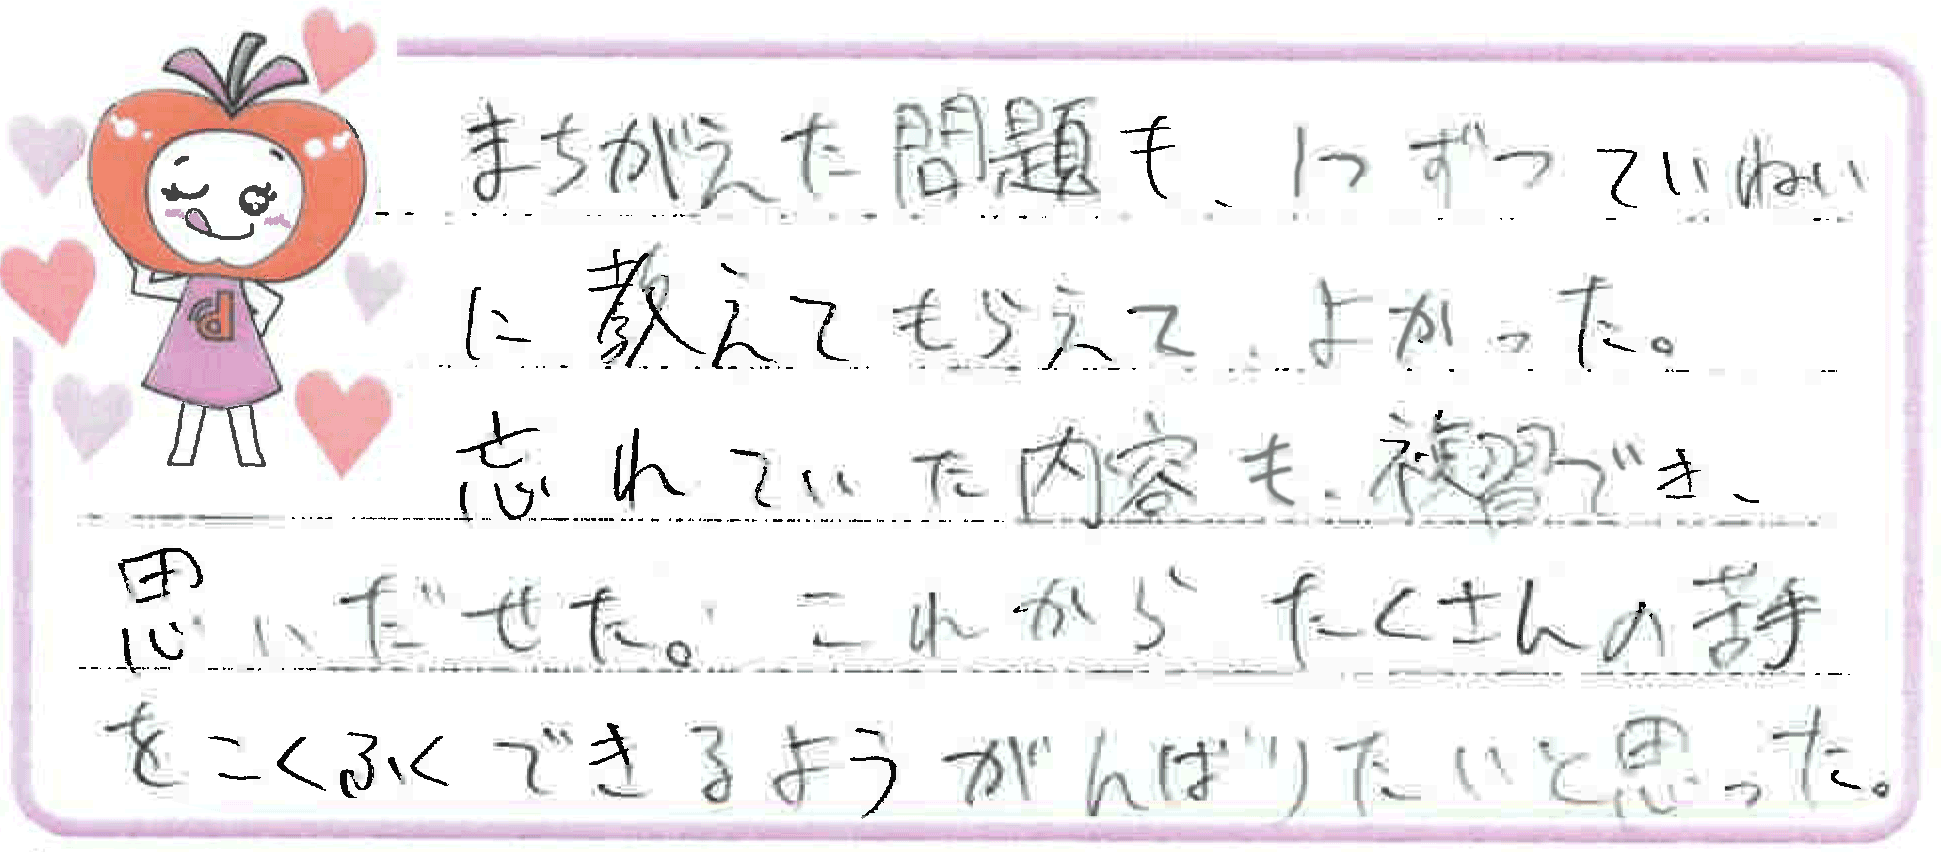 まちがえた問題も、1つずつていねい
に教えてもらえて、よかった。
忘れていた内容も、復習でき、
思いだせた。これからたくさんの苦手
をこくふくできるようがんばりたいと思った。